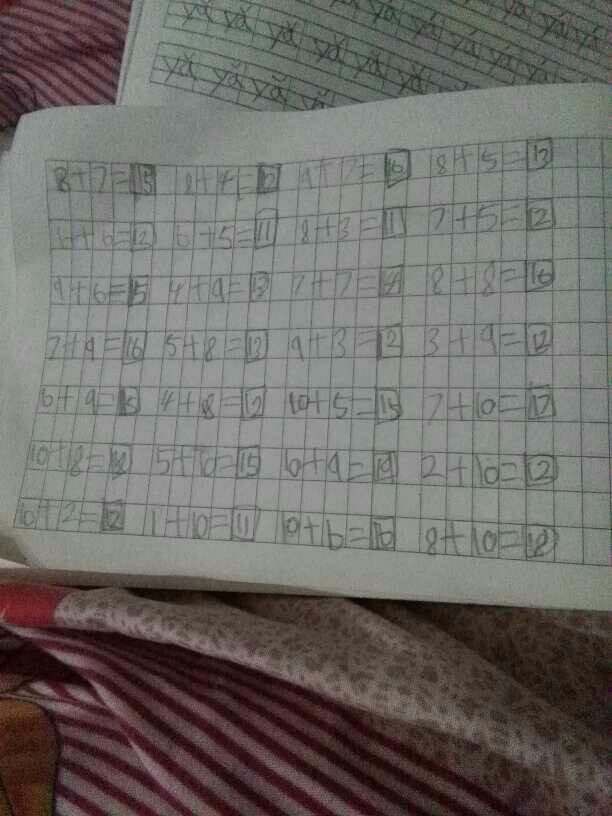 yǎ yǎ yǎ yǎ yǎ yá yá yá yá
yǎ yǎ yǎ yǎ yǎ yá yá yá
8+7=15 8+4=12 9+7=16 8+5=13
6+6=12 6+5=11 8+3=11 7+5=12
9+6=15 4+9=13 7+7=14 8+8=16
7+9=16 5+8=13 9+3=12 3+9=12
6+9=15 4+8=12 10+5=15 7+10=17
10+8=18 5+10=15 10+9=19 2+10=12
10+2=12 1+10=11 10+6=16 8+10=18